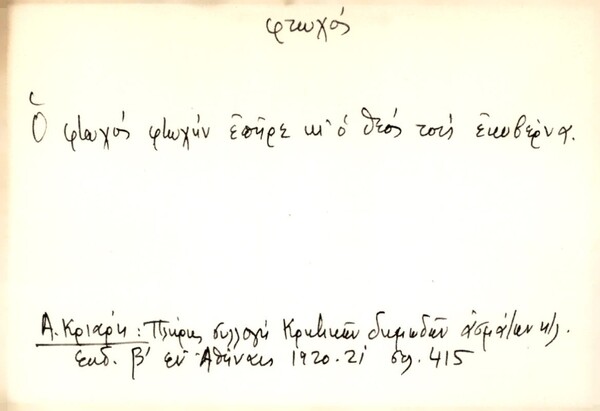 φτωχός
Ὁ φτωχός φτωχήν ἐπῆρε κι' ὁ θεός τούς ἐκυβέρνα.
Α. Κριάρη: Πλήρης συλλογή Κρητικῶν δημωδῶν ᾀσμάτων κλ.
ἐκδ. β' ἐν Ἀθήναις 1920-21 σελ. 415